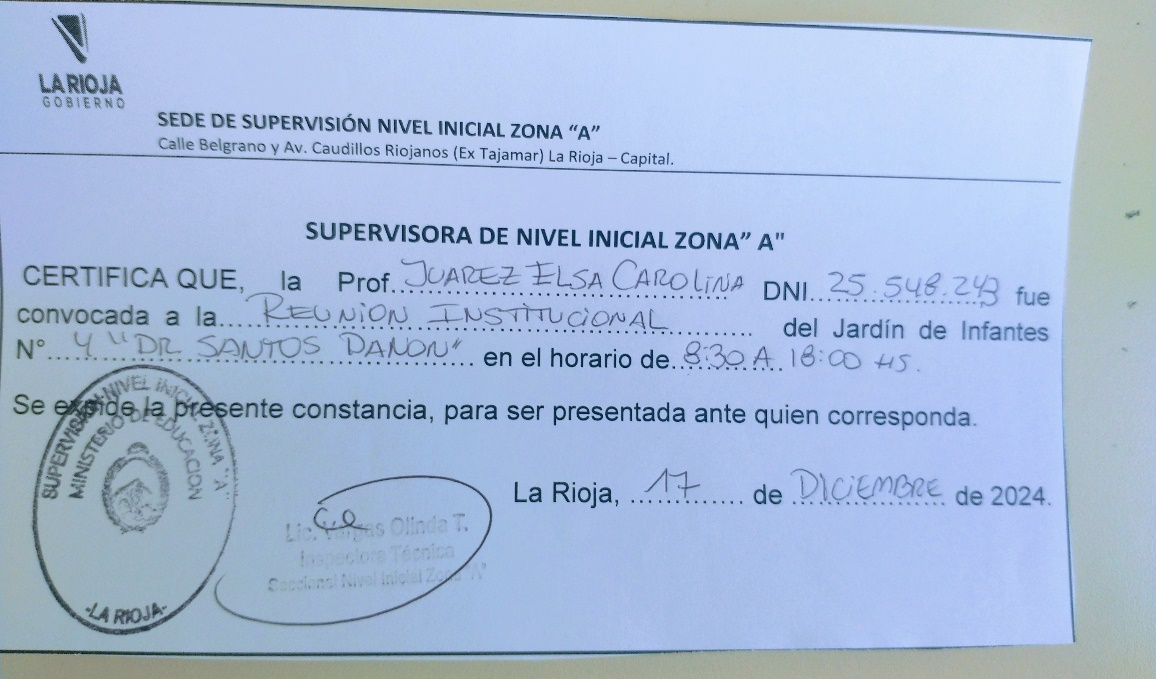 LA RIOJA
GOBIERNO
SEDE DE SUPERVISIÓN NIVEL INICIAL ZONA “A”
Calle Belgrano y Av. Caudillos Riojanos (Ex Tajamar) La Rioja – Capital.
SUPERVISORA DE NIVEL INICIAL ZONA” A"
CERTIFICA QUE, la Prof. JUAREZ ELSA CAROLINA DNI. 25.548.243 fue
convocada a la REUNION INSTITUCIONAL del Jardín de Infantes
N° 4 "DR SANTOS DANON" en el horario de 8:30 A 18:00 HS.
Se expide la presente constancia, para ser presentada ante quien corresponda.
La Rioja, 17 de DICIEMBRE de 2024.
SUPERVISION NIVEL INICIAL ZONA "A"
MINISTERIO DE EDUCACION
-LA RIOJA-
Lic. Vargas Olinda T.
Inspectora Técnica
Seccional Nivel Inicial Zona "A"